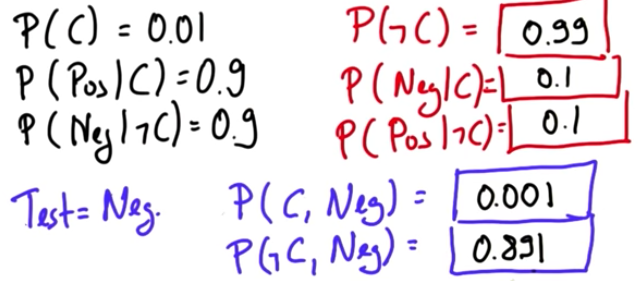 P(C) = 0.01
P(Pos|C) = 0.9
P(Neg|¬C) = 0.9
P(¬C) = 0.99
P(Neg|C) = 0.1
P(Pos|¬C) = 0.1
Test = Neg.
P(C, Neg) = 0.001
P(¬C, Neg) = 0.891